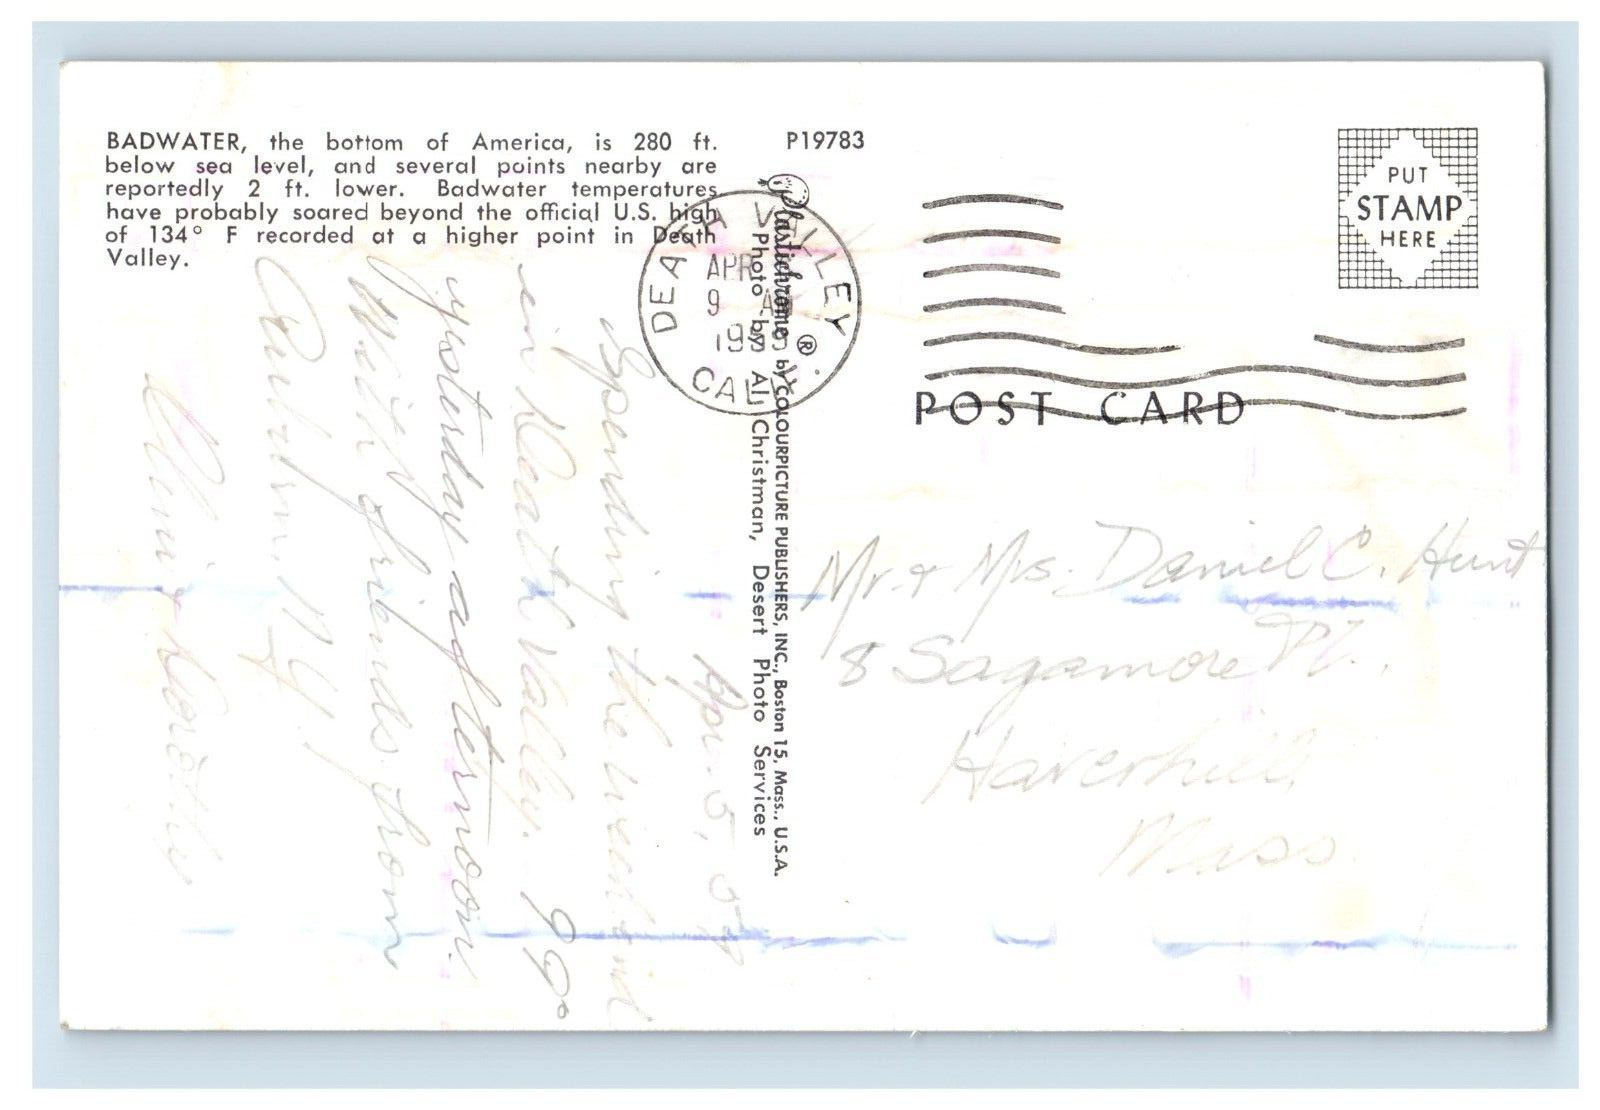 BADWATER, the bottom of America, is 280 ft.
below sea level, and several points nearby are
reportedly 2 ft. lower. Badwater temperatures
have probably soared beyond the official U.S. high
of 134° F recorded at a higher point in Death
Valley.
P19783
Plastichrome ® by COLOURPICTURE PUBLISHERS, INC., Boston 15, Mass., U.S.A.
Photo by Al Christman, Desert Photo Services
DEATH VALLEY
APR
9 A
19
CAL
PUT
STAMP
HERE
POST CARD
Apr. 5, 59
Spending the weekend
in Death Valley. 99°
yesterday afternoon.
With friends from
Auburn, N.Y.
Dorothy
Mr. + Mrs. Daniel C. Hunt
8 Sagamore Pl.,
Haverhill,
Mass.